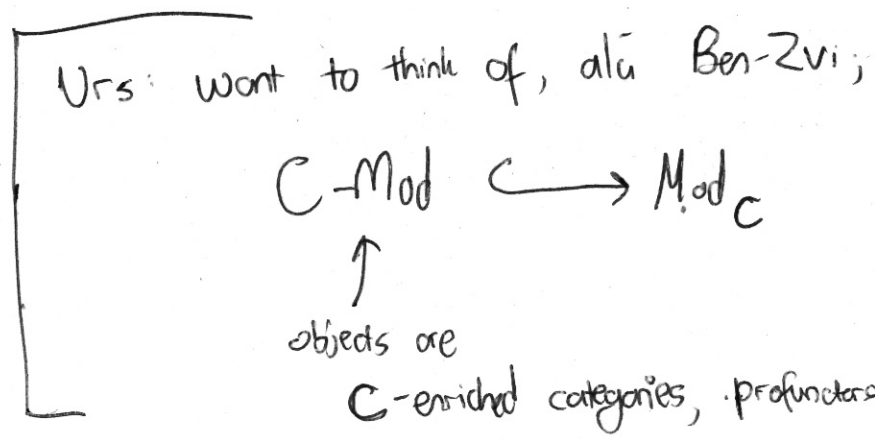 Urs: want to think of, alá Ben-Zvi;
C-Mod ↪ Mod_C
↑
objects are
C-enriched categories, profunctors